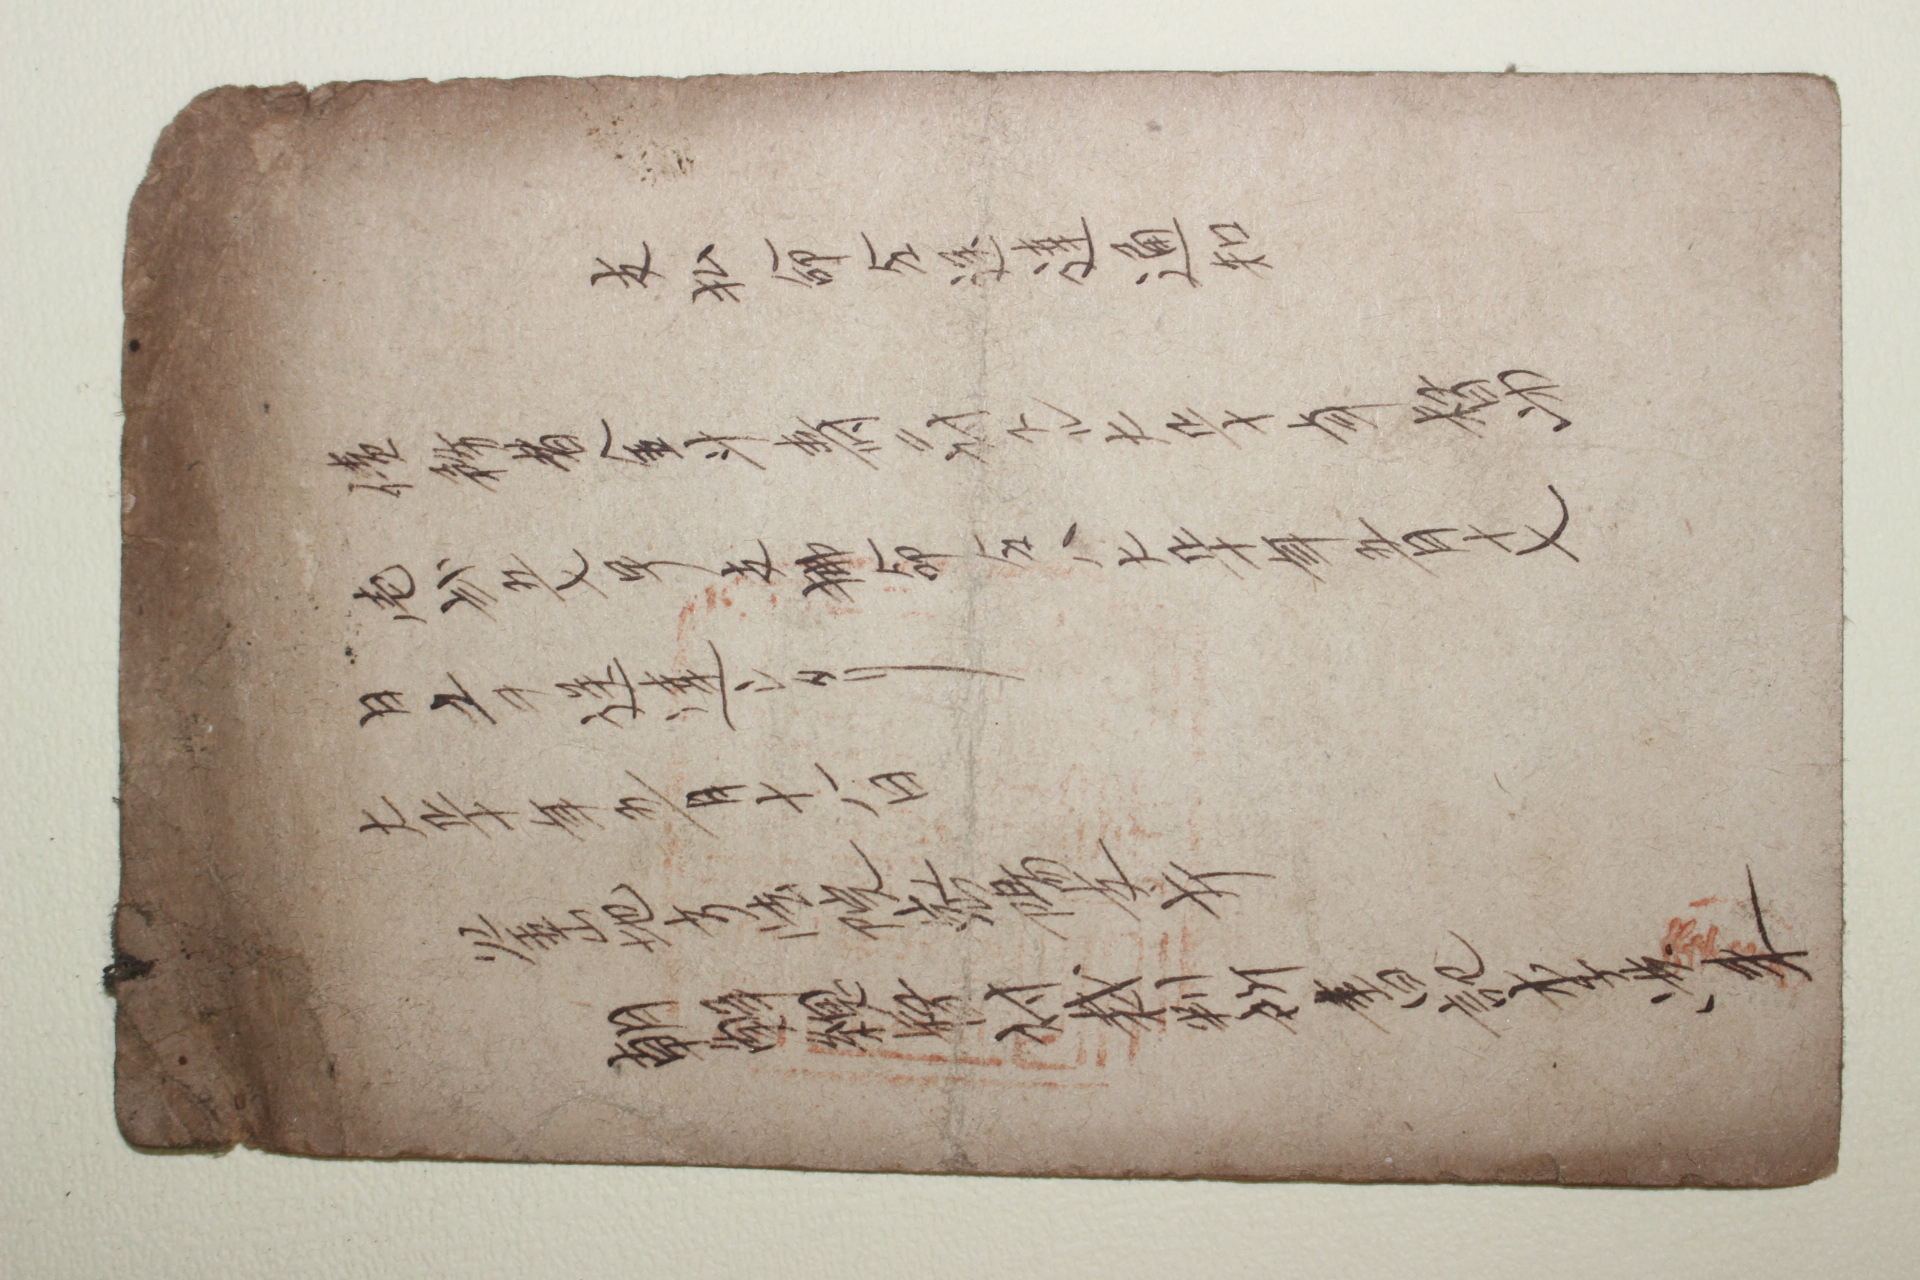 支払命令送達通知
債務者金斗寿ニ対スル大正十年督第
壱弐五七号支拂命令ハ大正十年五月十七
日之ヲ送達シタリ
大正十年五月十八日
釜山地方法院密陽支庁
朝鮮総督府裁判所書記李